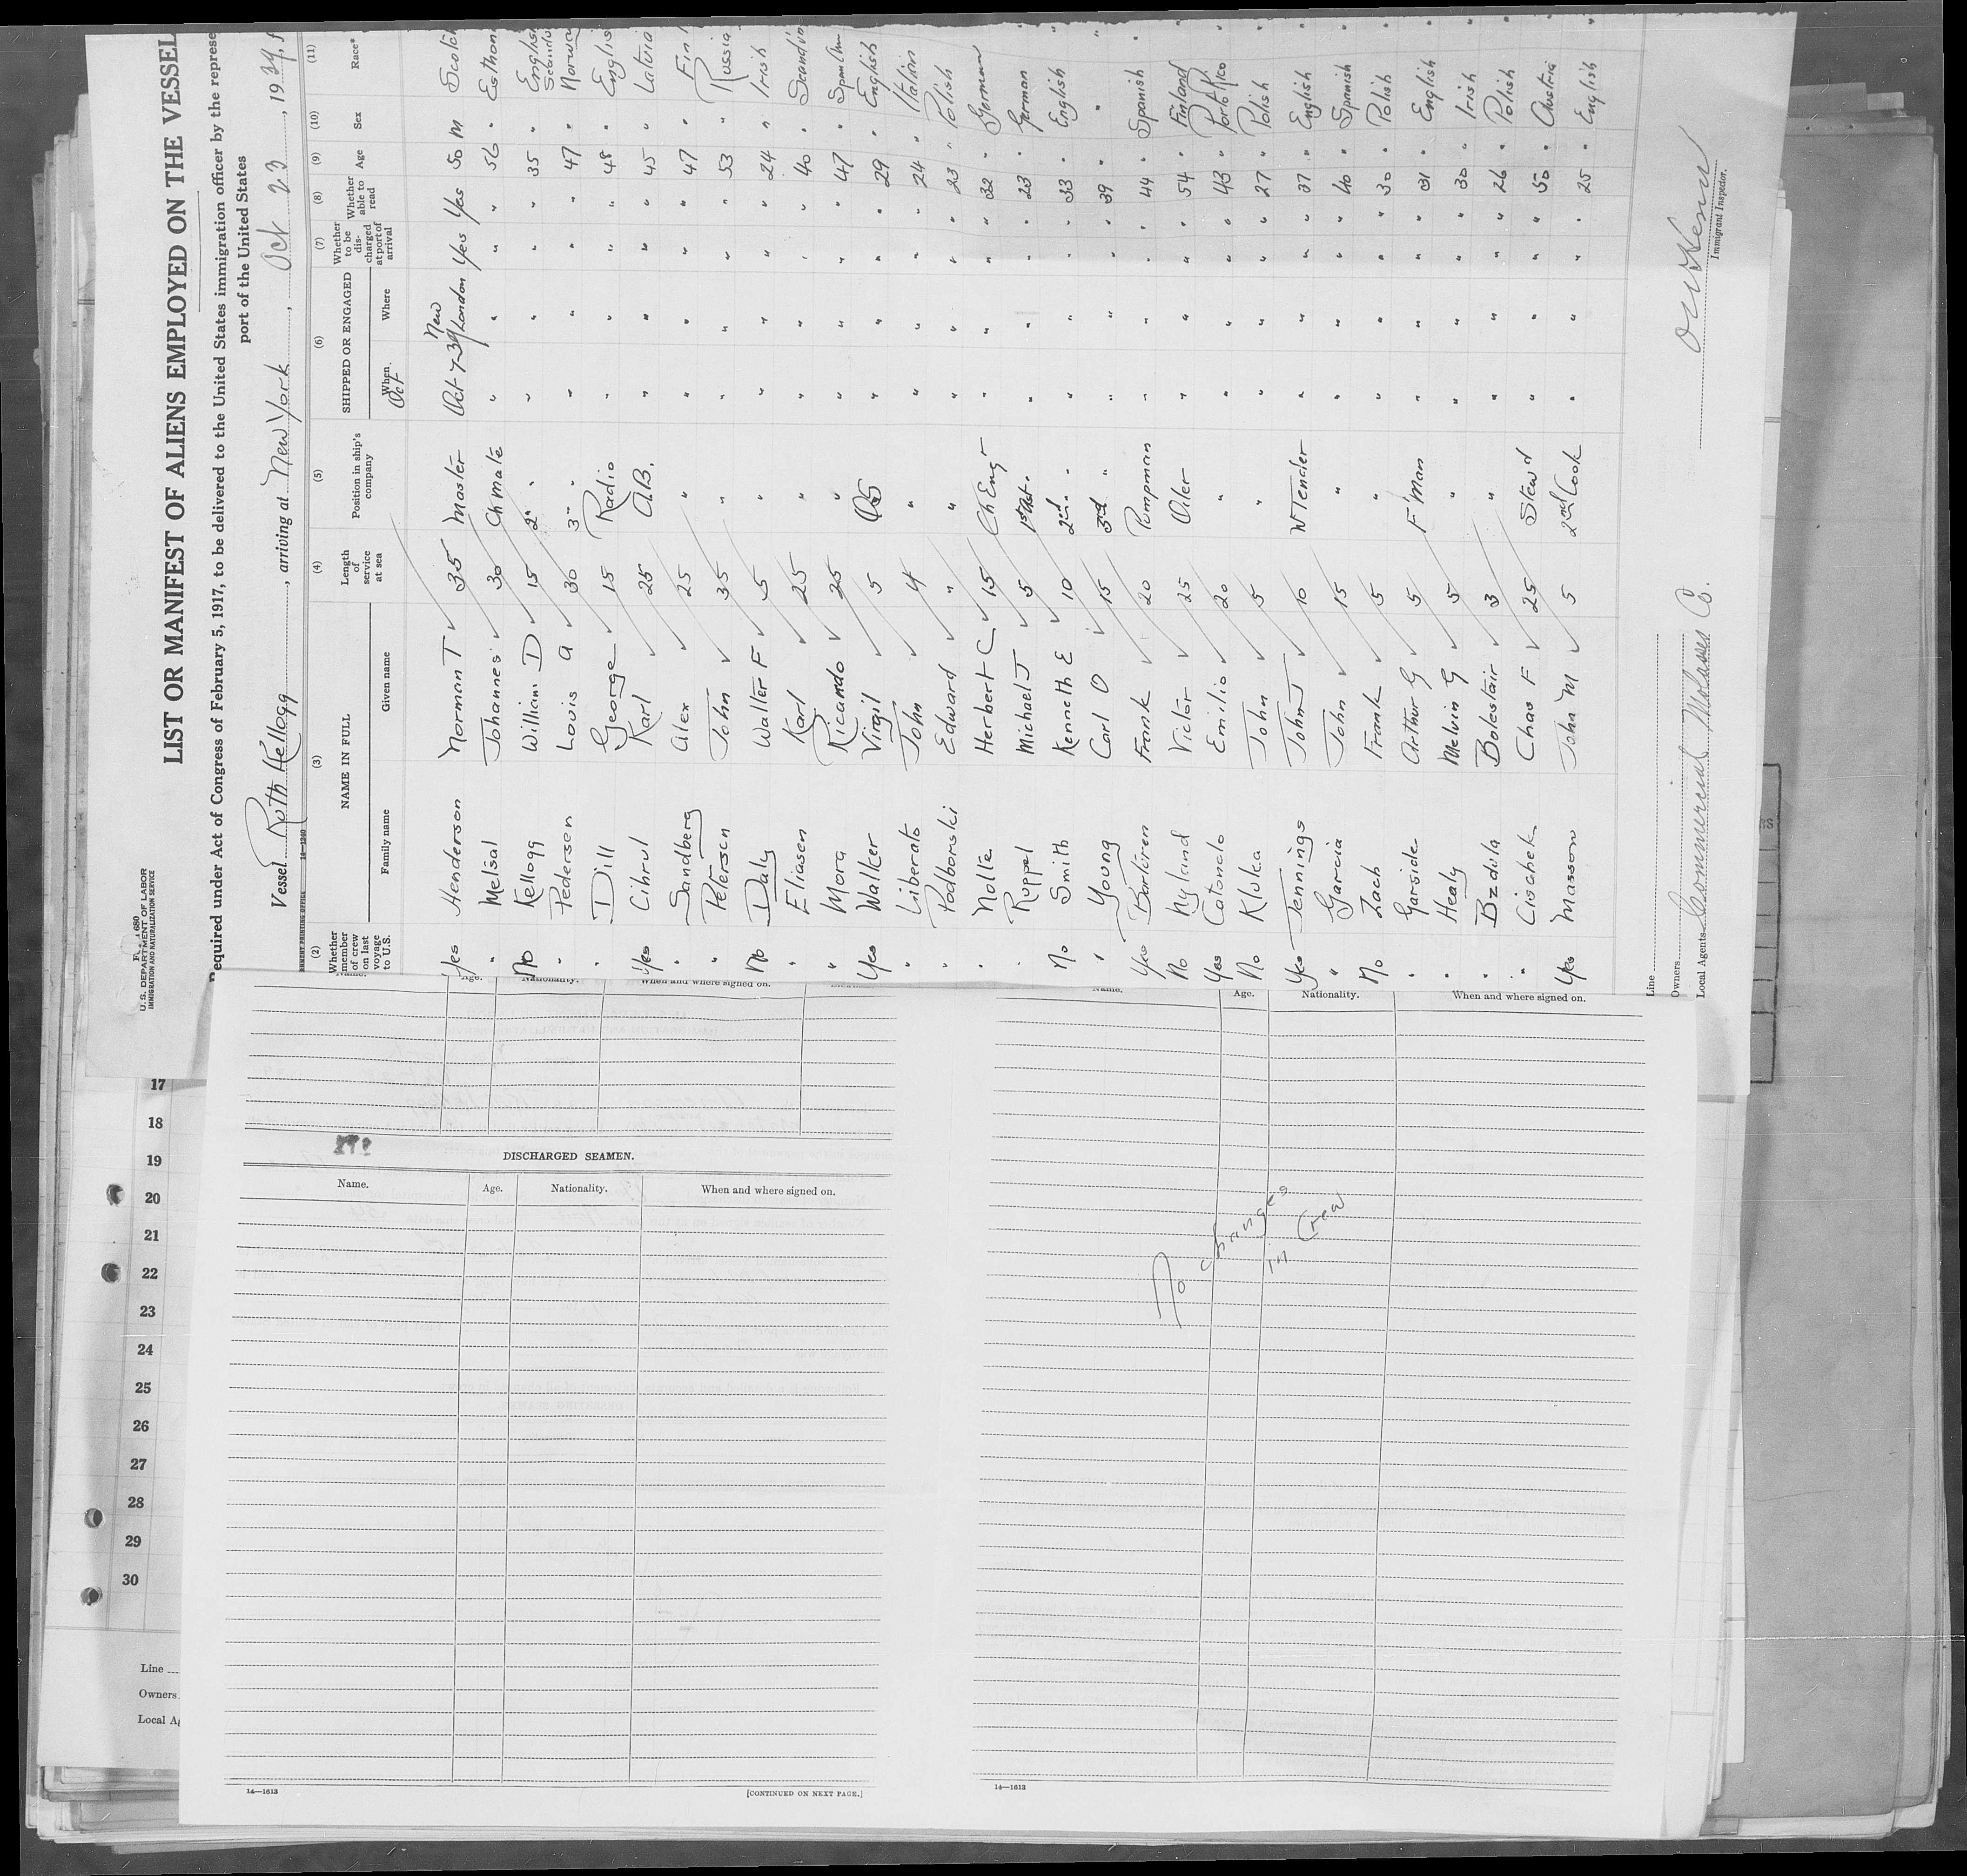 F 680
U. S. DEPARTMENT OF LABOR
IMMIGRATION AND NATURALIZATION SERVICE
LIST OR MANIFEST OF ALIENS EMPLOYED ON THE VESSEL
equired under Act of Congress of February 5, 1917, to be delivered to the United States immigration officer by the represe
port of the United States
Vessel Ruth Kellogg, arriving at New York, Oct 23, 1939, f
14—1240
(2) (3) (4) (5) (6) (7) (8) (9) (10) (11)
Whether member of crew on last voyage to U.S. NAME IN FULL Family name Given name Length of service at sea Position in ship's company SHIPPED OR ENGAGED When Where Whether to be discharged at port of arrival Whether able to read Age Sex Race*
Oct
Yes Henderson Norman T 35 Master Oct 7-39 New London Yes Yes 50 M Scotch
" Melsal Johannes 30 Ch mate " " " " 56 " Esthon
No Kellogg William D 15 2" " " " " " 35 " English
" Pedersen Louis A 30 3" " " " " " 47 " Scandin Norway
" Dill George 15 Radio " " " " 48 " English
Yes Cihrul Karl 25 A.B. " " " " 45 " Latvia
" Sandberg Alex 25 " " " " " 47 " Fin
" Petersen John 35 " " " " " 53 " Russia
No Daly Walter F 5 " " " " " 24 " Irish
" Eliasen Karl 25 " " " " " 40 " Scandin
" Mora Ricardo 25 " " " " " 47 " Spanish
Yes Walker Virgil 5 OS " " " " 29 " English
" Liberato John 4 " " " " " 24 " Italian
" Podborski Edward " " " " " " 23 " Polish
" Nolte Herbert C 15 Ch Engr " " " " 32 " German
" Ruppel Michael J 5 1st Ast. " " " " 23 " German
No Smith Kenneth E 10 2nd " " " " " 33 " English
" Young Carl O 15 3rd " " " " " 39 " "
Yes Frank 20 Pumpman " " " " 44 " Spanish
No Nylund Victor 25 Oiler " " " " 54 " Finland
Yes Emilio 20 " " " " " 43 " Porto Rico
No Kluka John 5 " " " " " 27 " Polish
Yes Jennings John J 10 W Tender " " " " 37 " English
" Garcia John 15 " " " " " 40 " Spanish
No Zach Frank 5 " " " " " 30 " Polish
" Garside Arthur G 5 F'Man " " " " 31 " English
" Healy Melvin G 5 " " " " " 30 " Irish
" Bzdula Bolestair 3 " " " " " 26 " Polish
" Cischek Chas F 25 Stew'd " " " " 50 " Austria
Yes Masson John M 5 2nd Cook " " " " 25 " English
Line
Owners
Local Agents Commercial Molasses Co.
Immigrant Inspector.
Age. Nationality. When and where signed on.
DISCHARGED SEAMEN.
Name. Age. Nationality. When and where signed on.
14—1613 [CONTINUED ON NEXT PAGE.]
Name. Age. Nationality. When and where signed on.
No changes
in Crew
14—1613
17
18
19
20
21
22
23
24
25
26
27
28
29
30
Line
Owners
Local Ag